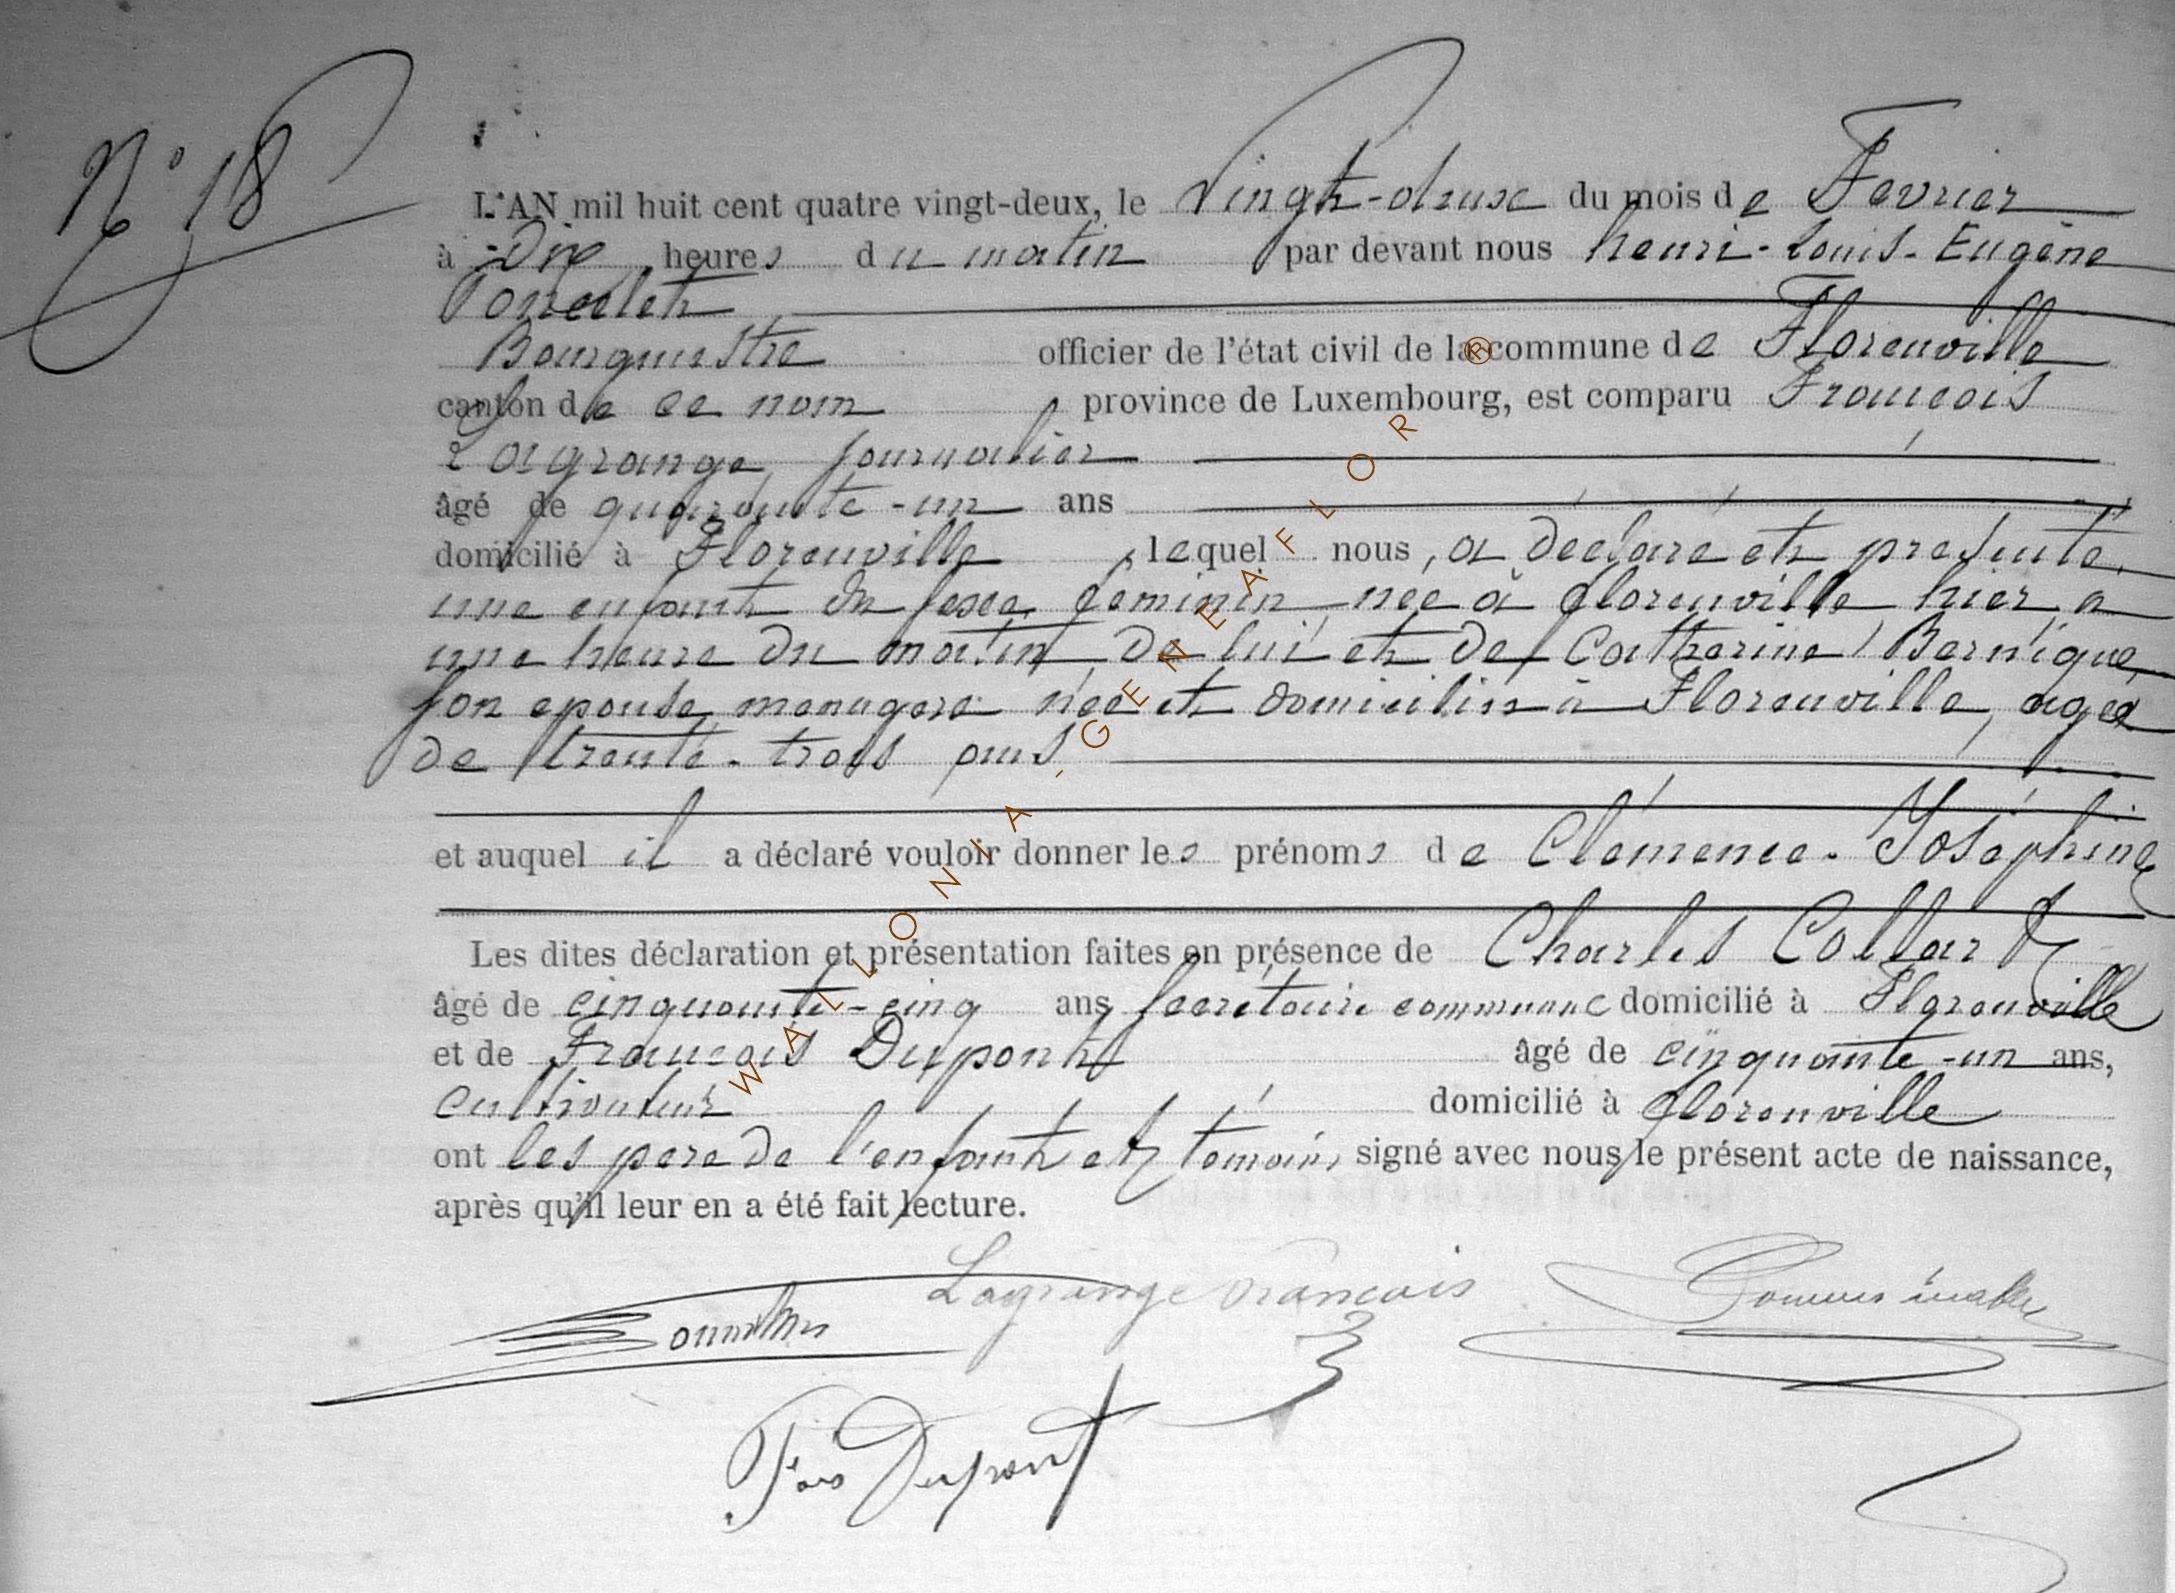 N° 18
L'AN mil huit cent quatre vingt-deux, le Vingt-deux du mois de Fevrier
à Dix heures du matin par devant nous henri-Louis-Eugène
Poncelet
Bourgmestre officier de l'état civil de la commune de Florenville
canton de ce nom province de Luxembourg, est comparu François
Lagrange, journalier
âgé de quarante-un ans
domicilié à Florenville, lequel nous, a déclaré et presenté,
une enfant du sexe feminin née à florenville hier a
une heure du matin, de lui et de Catherine Bernique,
son epouse, menagere née et domiciliée à Florenville, agée
de trente-trois ans
et auquel il a déclaré vouloir donner les prénoms de Clémence-Joséphine
Les dites déclaration et présentation faites en présence de Charles Collard
âgé de cinquante-cinq ans, secretaire communal domicilié à Florenville
et de François Dupont âgé de cinquante-un ans,
cultivateur domicilié à florenville
ont les pere de l'enfant et temoins signé avec nous le présent acte de naissance,
après qu'il leur en a été fait lecture.
Lagrange francois
Fçois Dupont
WALLONIA-GENEAFLOR ®